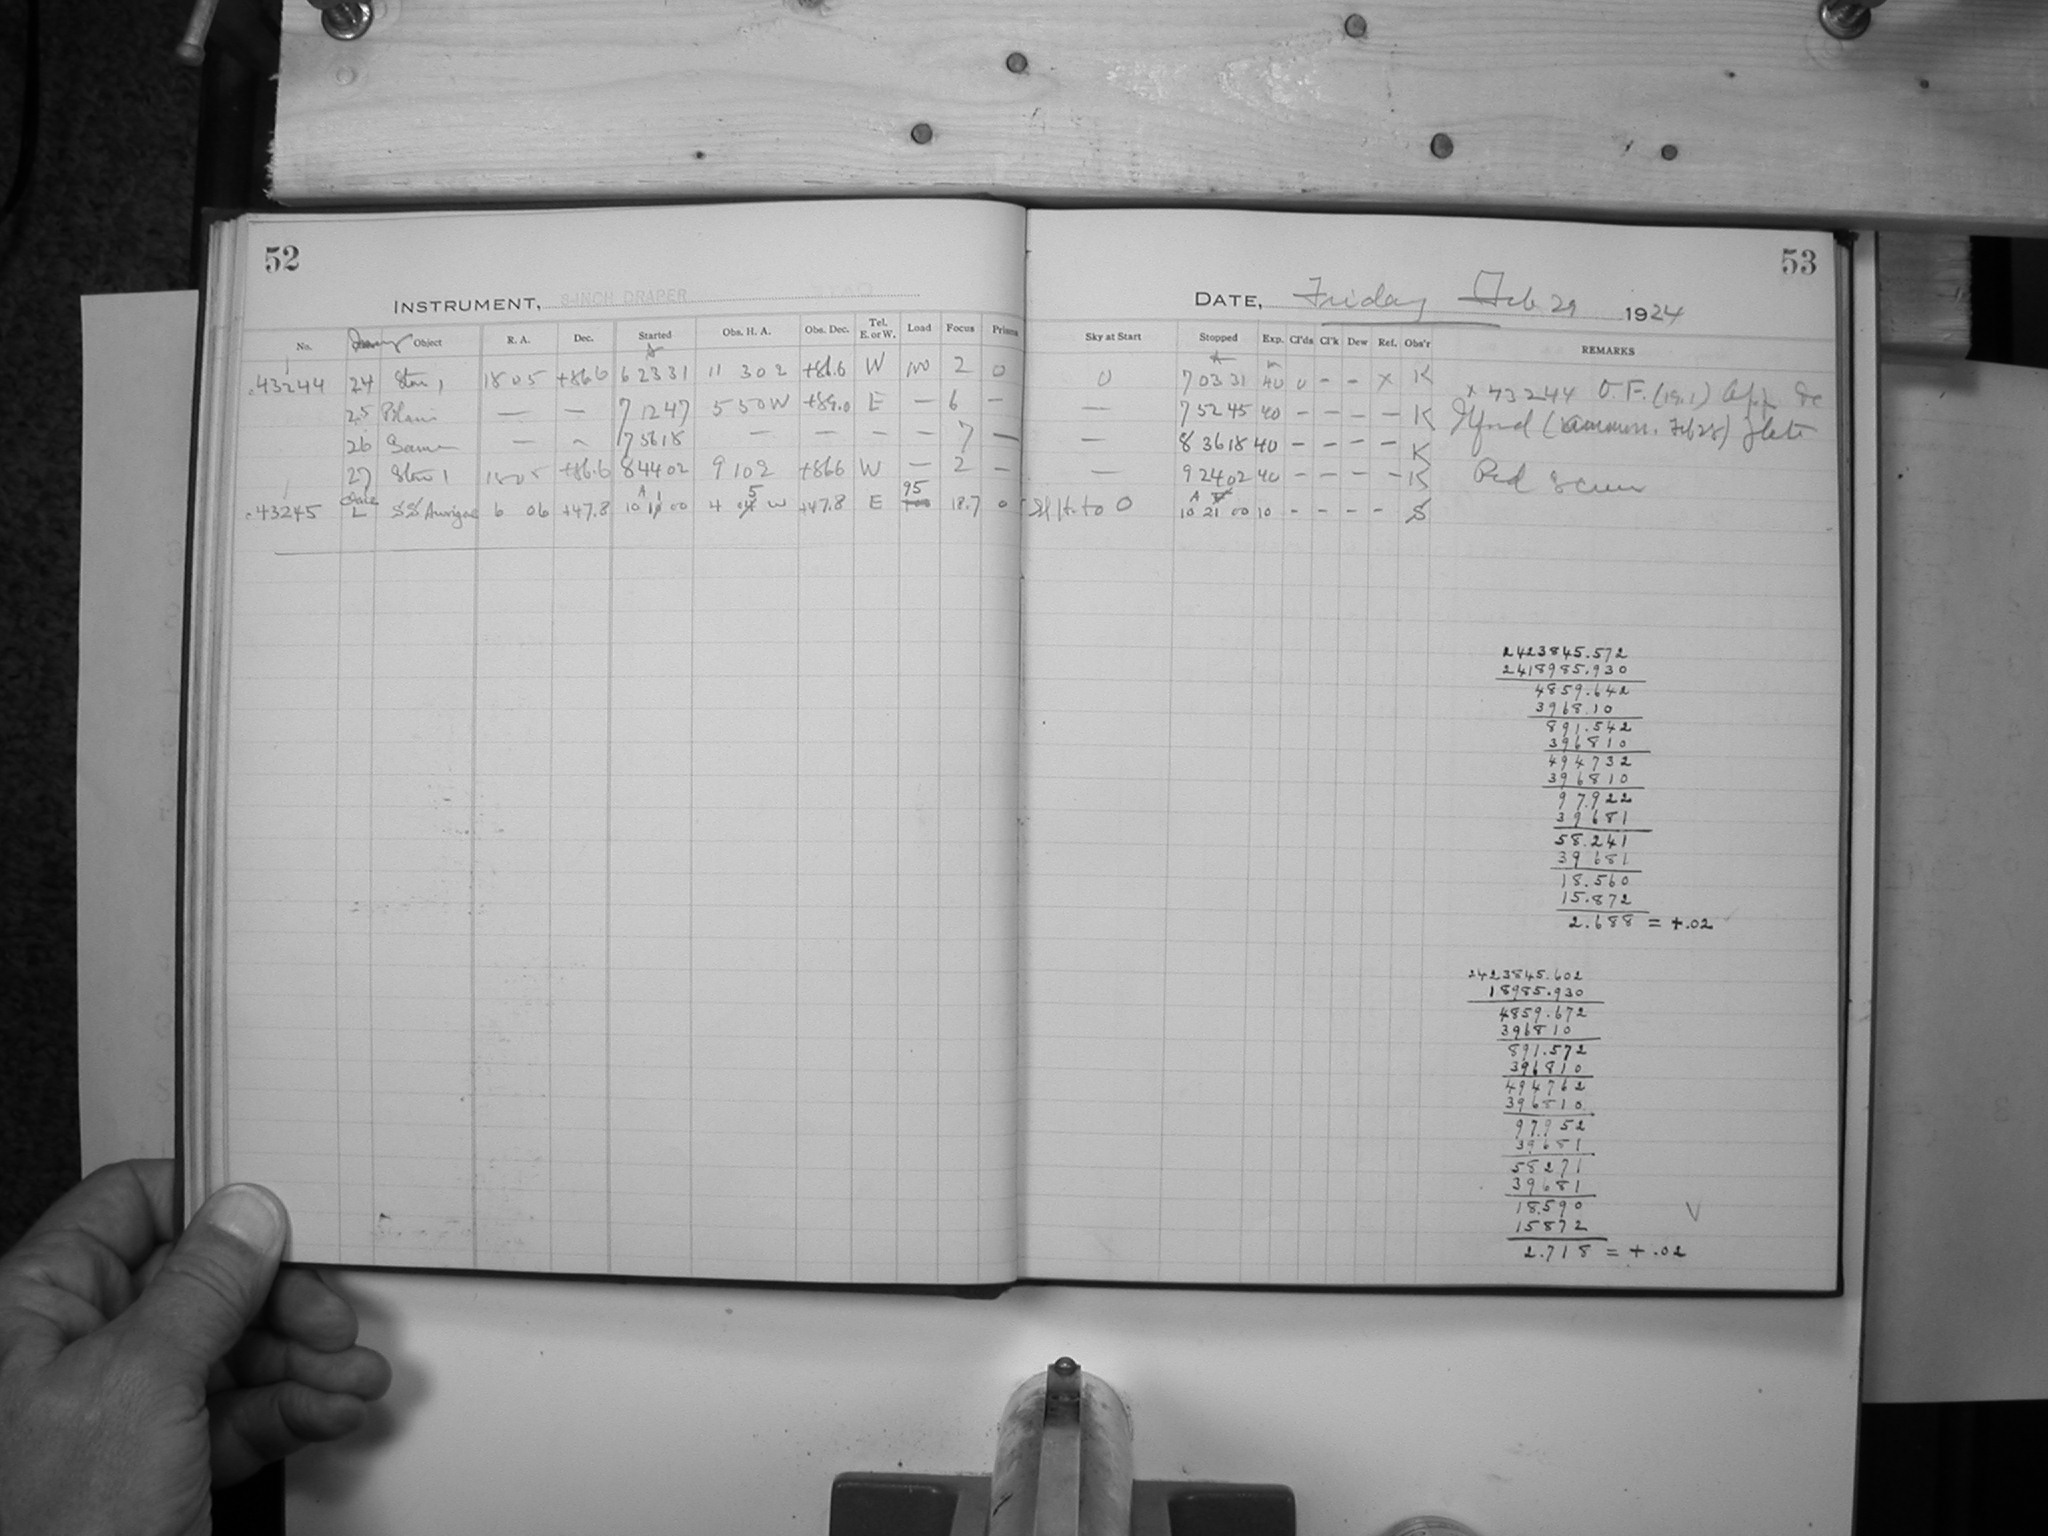 52
INSTRUMENT, 8-INCH DRAPER
No. Object R. A. Dec. Started Obs. H. A. Obs. Dec. Tel. E. or W. Load Focus Prisms
43244 24 1805 +86.6 6 23 31 11 30 2 +86.6 W 100 2 0
25 Polaris — — 7 12 47 5 50 W +89.0 E — 6 —
26 Same — — 7 56 18 — — — — 7 —
27 1805 +86.6 8 44 02 9 10 2 +86.6 W — 2 —
43245 L SS Aurigae 6 06 +47.8 10 11 00 4 05 W +47.8 E 95 18.7 0
53
DATE, Friday Feb 29 1924
Sky at Start Stopped Exp. Cl'ds Cl'k Dew Ref. Obs'r REMARKS
0 7 03 31 40 0 - - x K x 43244 O.F. (19.1)
— 7 52 45 40 - - - - K Ilford ( Feb 28) plate
— 8 36 18 40 - - - - K
— 9 24 02 40 - - - - K Red
to 0 10 21 00 10 - - - - S
2423845.572
2418985.930
4859.642
3968.10
891.542
396810
494732
396810
97.922
39681
58.241
39681
18.560
15.872
2.688 = +.02
2423845.602
18985.930
4859.672
396810
891.572
396810
494762
396810
97.952
39681
58271
39681
18.590
15872
2.718 = +.02